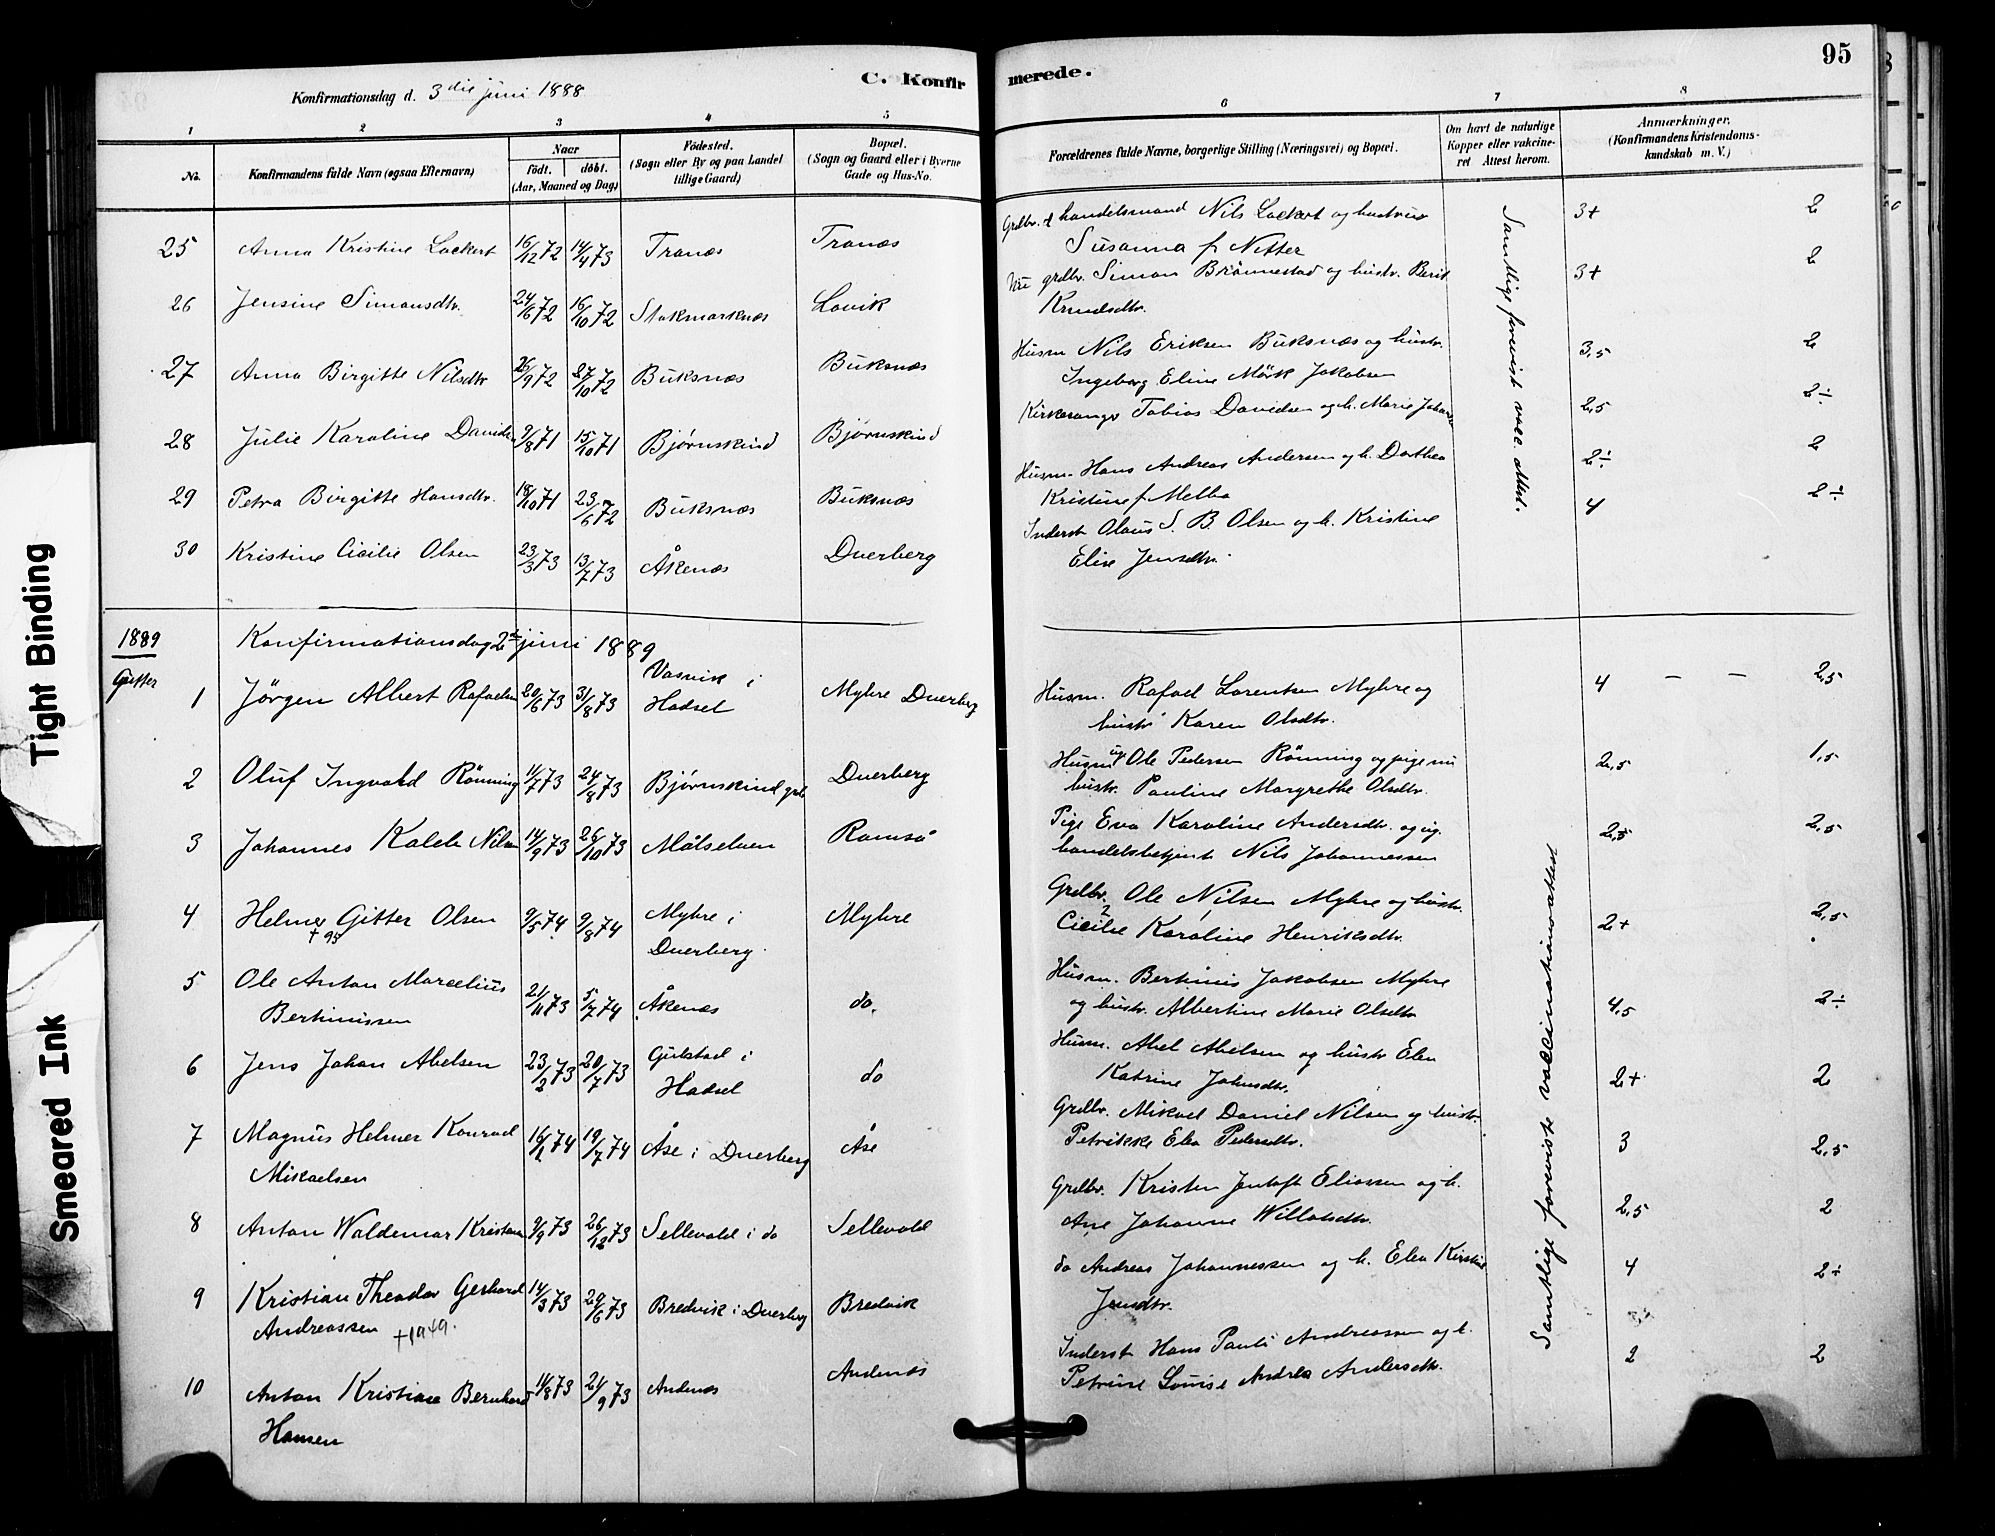 95
C. Konfirmerede.
Konfirmationsdag d. 3die juni 1888
1 2 3 4 5 6 7 8
No.
Konfirmandens fulde Navn (ogsaa Efternavn)
Naar
födt. döbt.
(Aar, Maaned og Dag)
Födested.
(Sogn eller By og paa Landet
tillige Gaard)
Bopæl.
(Sogn og Gaard eller i Byerne
Gade og Hus-No.
Forældrenes fulde Navne, borgerlige Stilling (Næringsvei) og Bopæl.
Om havt de naturlige
Kopper eller vakcine-
ret Attest herom.
Anmærkninger.
(Konfirmandens Kristendoms-
kundskab m. V.)
25 Anna Kristine Lockert 16/12 72 14/4 73 Tranæs Tranæs Grdbr. & handelsmand Nils Lockert og hustru 3+ 2
Susanna f. Netter
26 Jensine Simonsdtr. 24/6 72 16/10 72 Stokmarknæs Lovik grdbr. Simon Brönnestad og hustr. Berit 3+ 2
Knudsdtr.
27 Anna Birgitte Nilsdtr 26/9 72 27/10 72 Buksnæs Buksnæs Husm Nils Eriksen Buksnæs og hustr. 3,5 2
Ingeborg Eline Mörk Jakobsen
28 Julie Karoline Davidsen 9/8 71 15/10 71 Bjørnskind Bjørnskind Kirkesanger Tobias Davidsen og h. Marie Johans 2,5 2÷
29 Petra Birgitte Hansdtr. 18/10 71 23/6 72 Buksnæs Buksnæs Husm. Hans Andreas Andersen og h. Dorthea 2÷ 2
Kristine f. Melbo
30 Kristine Cicilie Olsen 23/3 73 13/7 73 Åkenæs Dverberg Inderst Olaus S. B. Olsen og h. Kristine 4 2÷
Elise Jensdtr.
Samtlige forevist vacc. attest.
1889 Konfirmationsdag 2den juni 1889
Gutter
1 Jörgen Albert Rafaelsen 20/6 73 31/8 73 Vasvik i Hadsel Myhre Dverberg Husm. Rafael Lorentsen Myhre og 4 — — 2,5
hustr Karen Olsdtr.
2 Oluf Ingvald Rönning 11/7 73 24/8 73 Bjørnskind Dverberg Husm Ole Pedersen Rönning og pige nu 2,5 1,5
hustr. Pauline Margrethe Olsdtr.
3 Johannes Kaleb Nilsen 14/9 73 26/10 73 Målselven Ramså Pige Eva Karoline Andersdtr. og ug. 2,5 2,5
handelsbetjent Nils Johannessen
4 Helmer Gitter Olsen 9/5 74 9/8 74 Myhre i Dverberg. Myhre Grdbr. Ole Nilsen Myhre og hustr. 2+ 2,5
+ 95 Cicilie Karoline Henriksdtr.
5 Ole Anton Marcelius 21/11 73 5/7 74 Åkenæs do. Husm. Bertinius Jakobsen Myhre 4,5 2÷
Bertinussen og hustr. Albertine Marie Olsdtr
6 Jens Johan Abelsen 23/2 73 20/7 73 Gulstad i Hadsel do Husm. Abel Abelsen og hustr Elen 2+ 2
Katrine Johnsdtr.
7 Magnus Helmer Konrad 16/2 74 19/7 74 Åse i Dverberg Åse Grdbr. Mikael Daniel Nilsen og hustr. 3 2,5
Mikaelsen Petrikke Elen Pedersdtr.
8 Anton Waldemar Kristensen 9/9 73 26/12 73 Sellevold i do Sellevold Grdbr. Kristen Jentoft Eliassen og h. 2,5 2
Ane Johanne Willatsdtr.
9 Kristian Theodor Gerhard 14/3 73 29/6 73 Bredvik i Dverberg Bredvik do Andreas Johannessen og h. Elen Kirstine 4 2÷
Andreassen +1949. Jensdtr.
10 Anton Kristian Bernhard 11/8 73 21/9 73 Andenæs Andenæs Inderst Hans Pauli Andreassen og h. 2 2
Hansen Petrine Louise Andrea Andersdtr.
Samtlige foreviste vaccinationsattest
Tight Binding
Smeared Ink